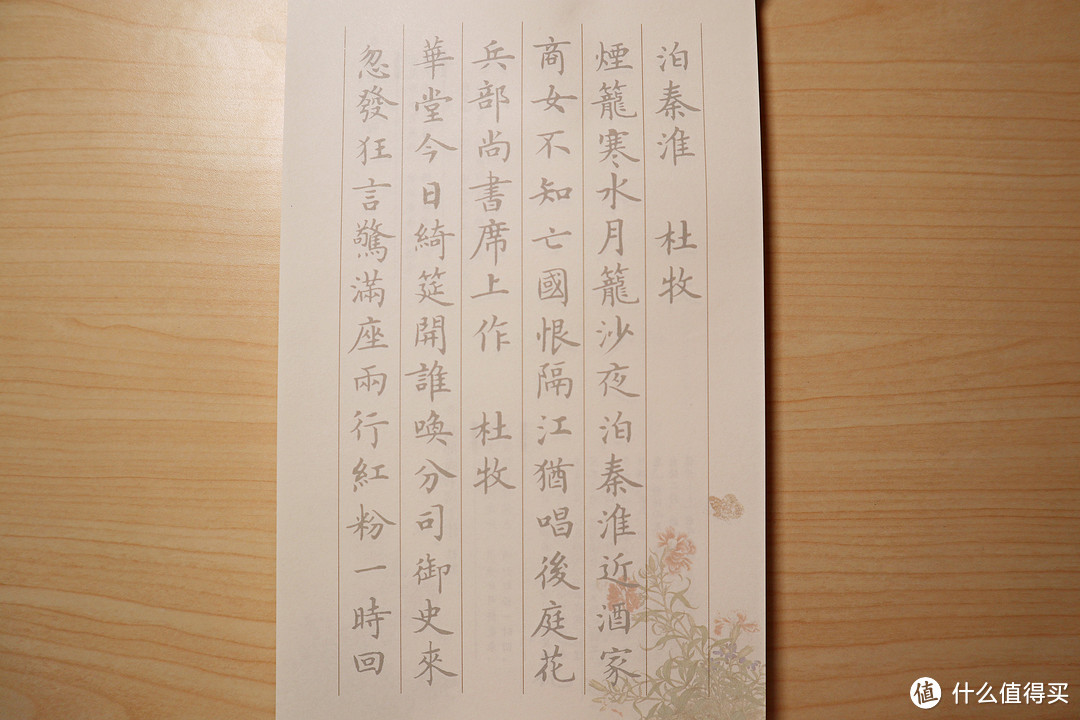 泊秦淮 杜牧
煙籠寒水月籠沙夜泊秦淮近酒家
商女不知亡國恨隔江猶唱後庭花
兵部尚書席上作 杜牧
華堂今日綺筵開誰喚分司御史來
忽發狂言驚滿座兩行紅粉一時回
值 什么值得买